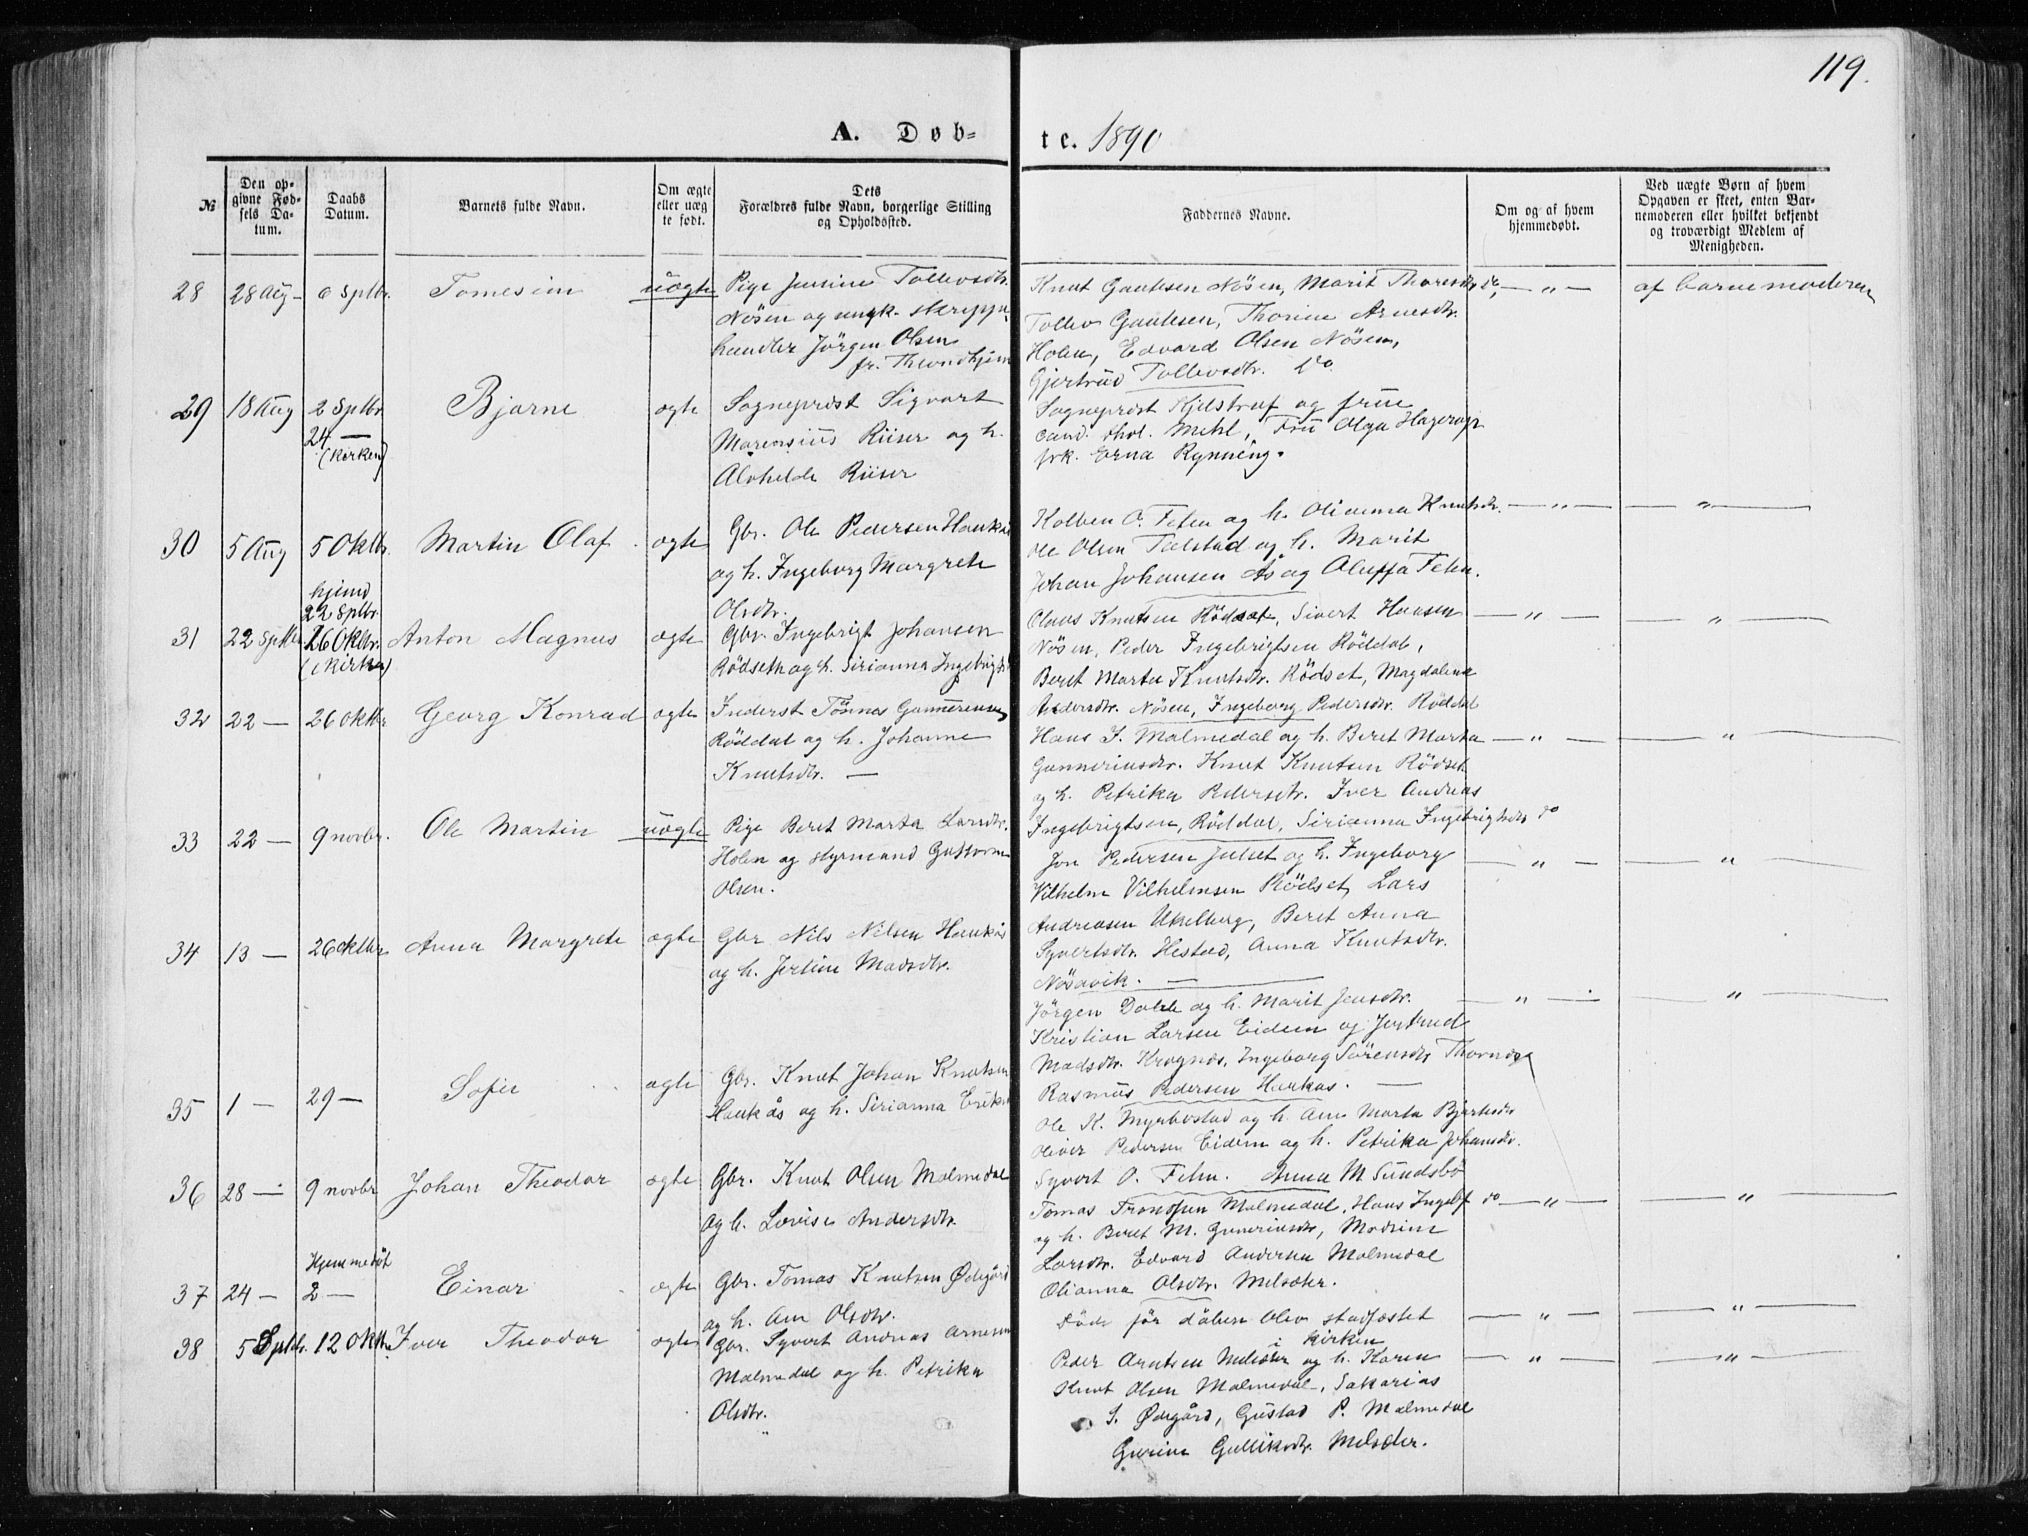 119.
A. Døb- te. 1890
№
Den opgivne Fødsels Datum.
Daabs Datum.
Barnets fulde Navn.
Om ægte eller uægte født.
Dets Forældres fulde Navn, borgerlige Stilling og Opholdssted.
Faddernes Navne.
Om og af hvem hjemmedøbt.
Ved uægte Børn af hvem Opgaven er skeet, enten Barnemoderen eller hvilket bekjendt og troværdigt Medlem af Menigheden.
28 28 Aug — Septbr. Tomesine uægte Pige Jensine Tollevsdtr.
Nösen og ungk. skreppe-
handler Jörgen Olsen
fr. Throndhjem
Knut Gautesen Nösen, Marit Thoresdtr do, — " — af barnemoderen
Tollev Gautesen, Thorine Arnesdtr.
Holen, Edvard Olsen Nösen,
Gjertrud Tollevsdtr. do.
29 18 Aug 2 Septbr. Bjarne ægte Sogneprest Sigvart
24 —
(Kirken)
Marensius Riiser og h.
Alvhilde Riiser
Sogneprest Kjelstrup og frue
cand. Mehl, Fru Olga Hagerup
frk. Erna Rynning.
30 5 Aug 5 Oktbr. Martin Olaf ægte Gbr. Ole Pedersen Haukås
og h. Ingeborg Margrete
Olsdtr.
Kolben O. Felen og h. Olianna Knutsdtr. — " — "
Ole Olsen Talstad og h. Marit
Johan Johansen Ås og Oluffa Felen.
31 22 Septbr. hjemd
22 Septbr.
26 Oktbr.
(i kirken)
Anton Magnus ægte Gbr. Ingebrigt Johansen
Rödseth og h. Sirianna Ingebrigtsd
Olaus Knutsen Rödset, Sivert Hansen — " — "
Nösen, Peder Ingebrigtsen Röddal,
Beret Marta Knutsdtr. Rödset, Magdalena
Andersdtr. Nösen, Ingeborg Pedersdtr. Röddal
32 22 — 26 Oktbr Georg Konrad ægte Inderst Tönnes Gunnerensen
Röddal og h. Johanne
Knutsdtr. —
Hans I. Malmedal og h. Beret Marta — " — "
Gunneriusdtr. Knut Knutsen Rödset
og h. Petrika Pedersdtr. Iver Andreas
Ingebrigtsen, Röddal, Sirianna Ingebrigtsdtr do
33 22 — 9 novbr. Ole Martin uægte Pige Beret Marta Larsdtr.
Holen og styrmand Gustav
Olsen.
Jon Pedersen Julset og h. Ingeborg — " — "
Vilhelm Vilhelmsen Rödset, Lars
Andreasen Ukelberg, Beret Anna
Syvertsdtr. Hestad, Anna Knutsdtr.
Nösavik. —
34 13 — 26 Oktbr Anna Margrete ægte Gbr Nils Nilsen Haukås
og h. Jertine Madsdtr.
Jörgen Dale og h. Marit Jensdtr. — " — "
Kristian Larsen Eidem og Jertrud
Madsdtr. Krognæs, Ingeborg Sörensdtr Thornæs
Rasmus Pedersen Haukås. —
35 1 — 29 — Sofie ægte Gbr. Knut Johan Knutsen
Haukås og h. Sirianna Eriksd
Ole K. Myrbostad og h. Ane Marta Bjarkesdtr
Oliver Pedersen Eidem og h. Petrika Johansdtr.
Syvert O. Felen. Anna M Sundsbö
36 28 — 9 novbr Johan Theodor ægte Gbr. Knut Olsen Malmedal
og h. Lovise Andersdtr.
Tomas Trondsen Malmedal, Hans Ingebr do — " — "
og h. Beret M. Gunneriusdtr, Madsine
Larsdtr. Edvard Andersen Malmedal
Olianna Olsdtr. Melsæter.
37 24 — Hjemmedöbt
2 —
Einar ægte Gbr. Tomas Knutsen Ødegård
og h. Ane Olsdtr.
Döde för dåben blev stadfæstet — " — "
i kirken
38 5 Septbr. 12 Oktbr. Iver Theodor ægte Gbr. Syvert Andreas Arnesen
Malmedal og h. Petrika
Olsdtr.
Peder Arntsen Melsæter og h. Karen — " — "
Knut Olsen Malmedal, Sakarias
S. Ødegård, Gustad P. Malmedal
Gurine Gulliksdtr. Melsæter.